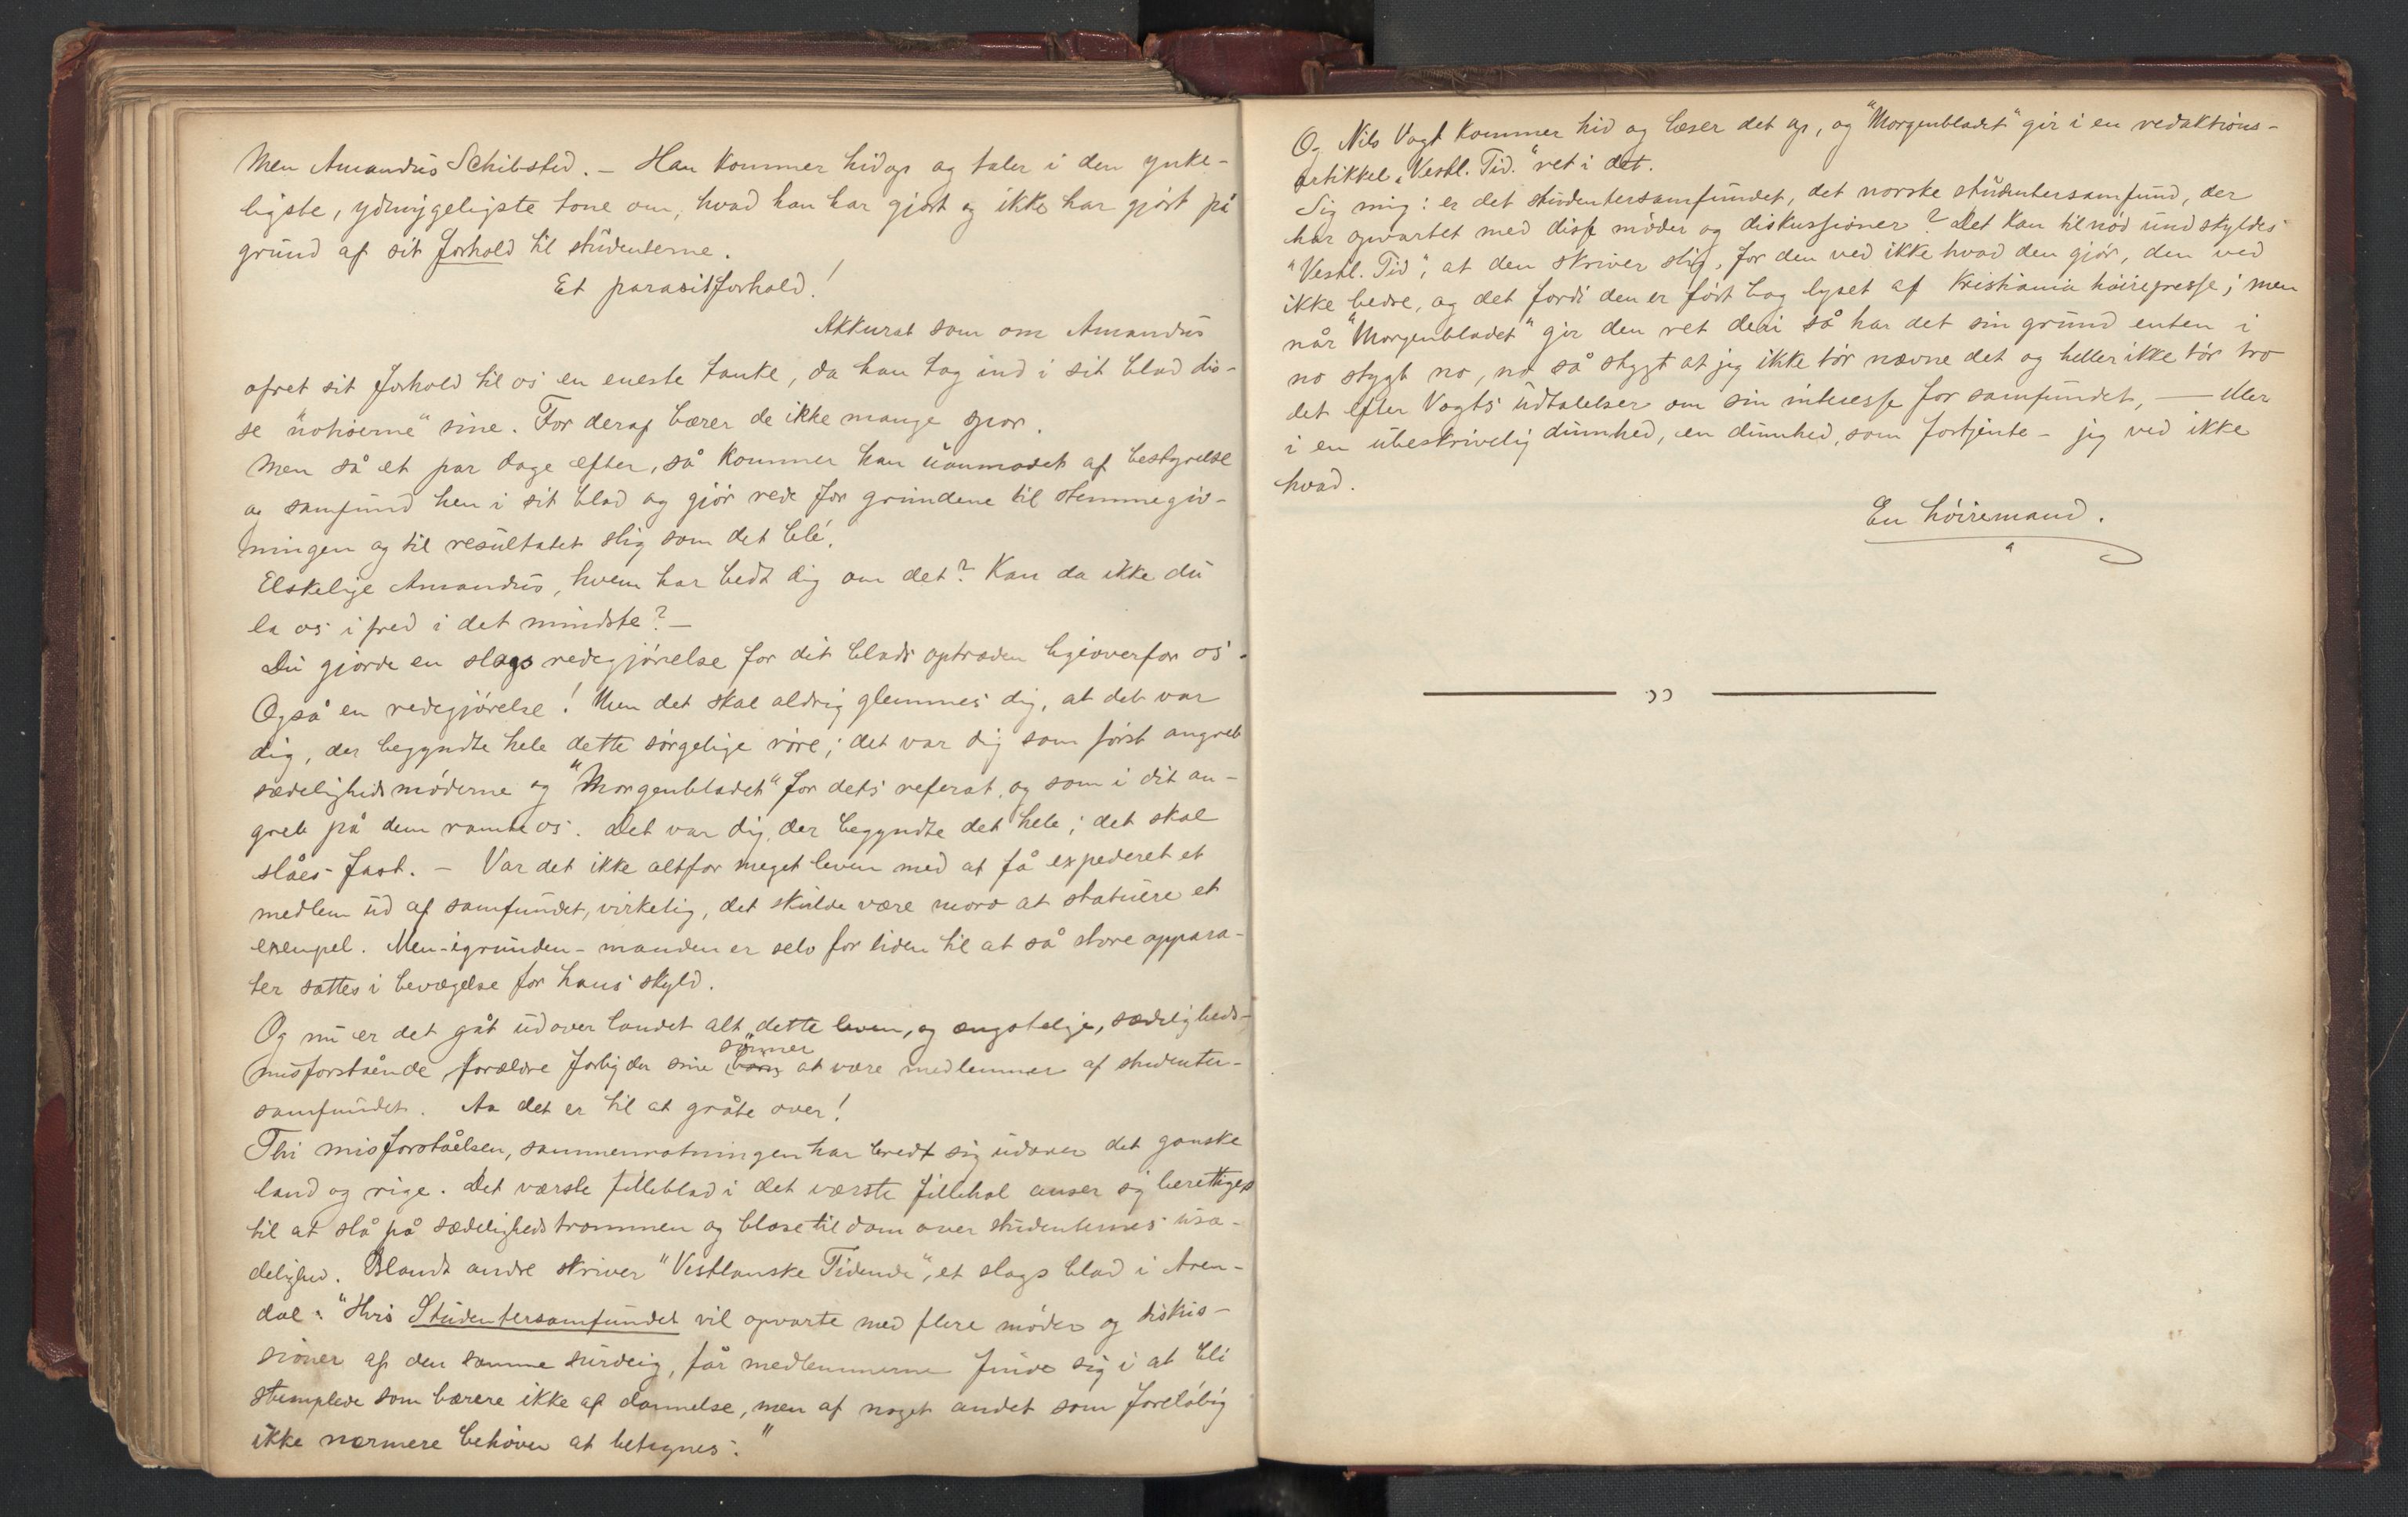 Men Amandus Schibsted. – Han kommer hidop og taler i den ynke-
ligste, ydmygeligste tone om, hvad han har gjort og ikke har gjort på
grund af sit forhold til studenterne.
Et parasitforhold!
Akkurat som om Amandus
ofret sit forhold til os en eneste tanke, da han tog ind i sit blad dis-
se "notiserne" sine. For deraf bærer de ikke mange spor.
Men så et par dage efter, så kommer han uanmodet af bestyrelse
og samfund hen i sit blad og gjör rede for grundene til stemmegiv-
ningen og til resultatet slig som det blé.
Elskelige Amandus, hvem har bedt dig om det? Kan da ikke du
la os i fred i det mindste? –
Du gjorde en slags redegjörelse for dit blads optræden ligeoverfor os.
Også en redegjörelse! Men det skal aldrig glemmes dig, at det var
dig, der begyndte hele dette sörgelige röre; det var dig som först angreb
sædelighedsmöderne og "Morgenbladet" for dets referat, og som i dit an-
greb på dem ramte os. Det var dig, der begyndte det hele; det skal
slåes fast. – Var det ikke altfor meget leven med at få expederet et
medlem ud af samfundet, virkelig, det skulde være moro at statuere et
exempel. Men – igrunden – manden er selv for liden til at så store appara-
ter sættes i bevægelse for hans skyld.
Og nu er det gåt udover landet alt dette leven, og ængstelige, sædeligheds-
misforstående forældre forbyder sine börn sönner at være medlemmer af studenter-
samfundet. Aa det er til at gråte over!
Thi misforståelsen, sammenrotningen har bredt sig udover det ganske
land og rige. Det værste filleblad i det værste fillehol anser sig berettiget
til at slå på sædelighedstrommen og blæse til dom over studenternes usæ-
delighed. Blandt andre skriver "Vestlanske Tidende", et slags blad i Aren-
dal: "Hvis Studentersamfundet vil opvarte med flere möder og diskus-
sioner af den samme surdeig, får medlemmerne finde sig i at bli
stemplede som bærere ikke af dannelse, men af noget andet som foreløbig
ikke nærmere behöver at betegnes."
Og Nils Vogt kommer hid og læser det op, og "Morgenbladet" gir i en redaktions-
artikkel "Vestl. Tid." ret i det.
Sig mig: er det studentersamfundet, det norske studentersamfund, der
har opvartet med disse möder og diskussioner? Det kan til nöd undskyldes
"Vestl. Tid", at den skriver slig, for den ved ikke hvad den gjör, den ved
ikke bedre, og det fordi den er fört bag lyset af Kristiania höirepresse; men
når "Morgenbladet" gir den ret deri så har det sin grund enten i
no stygt no, no så stygt at jeg ikke tör nævne det og heller ikke tör tro
det efter Vogts udtalelser om sin interesse for samfundet, – eller
i en ubeskrivelig dumhed, en dumhed, som fortjente – jeg ved ikke
hvad.
En höiremand.